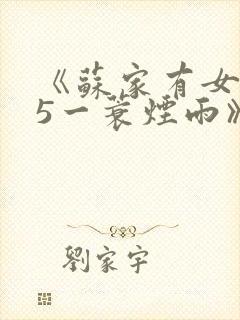 《蘇家有女
5一蓑煙雨》
劉家宇